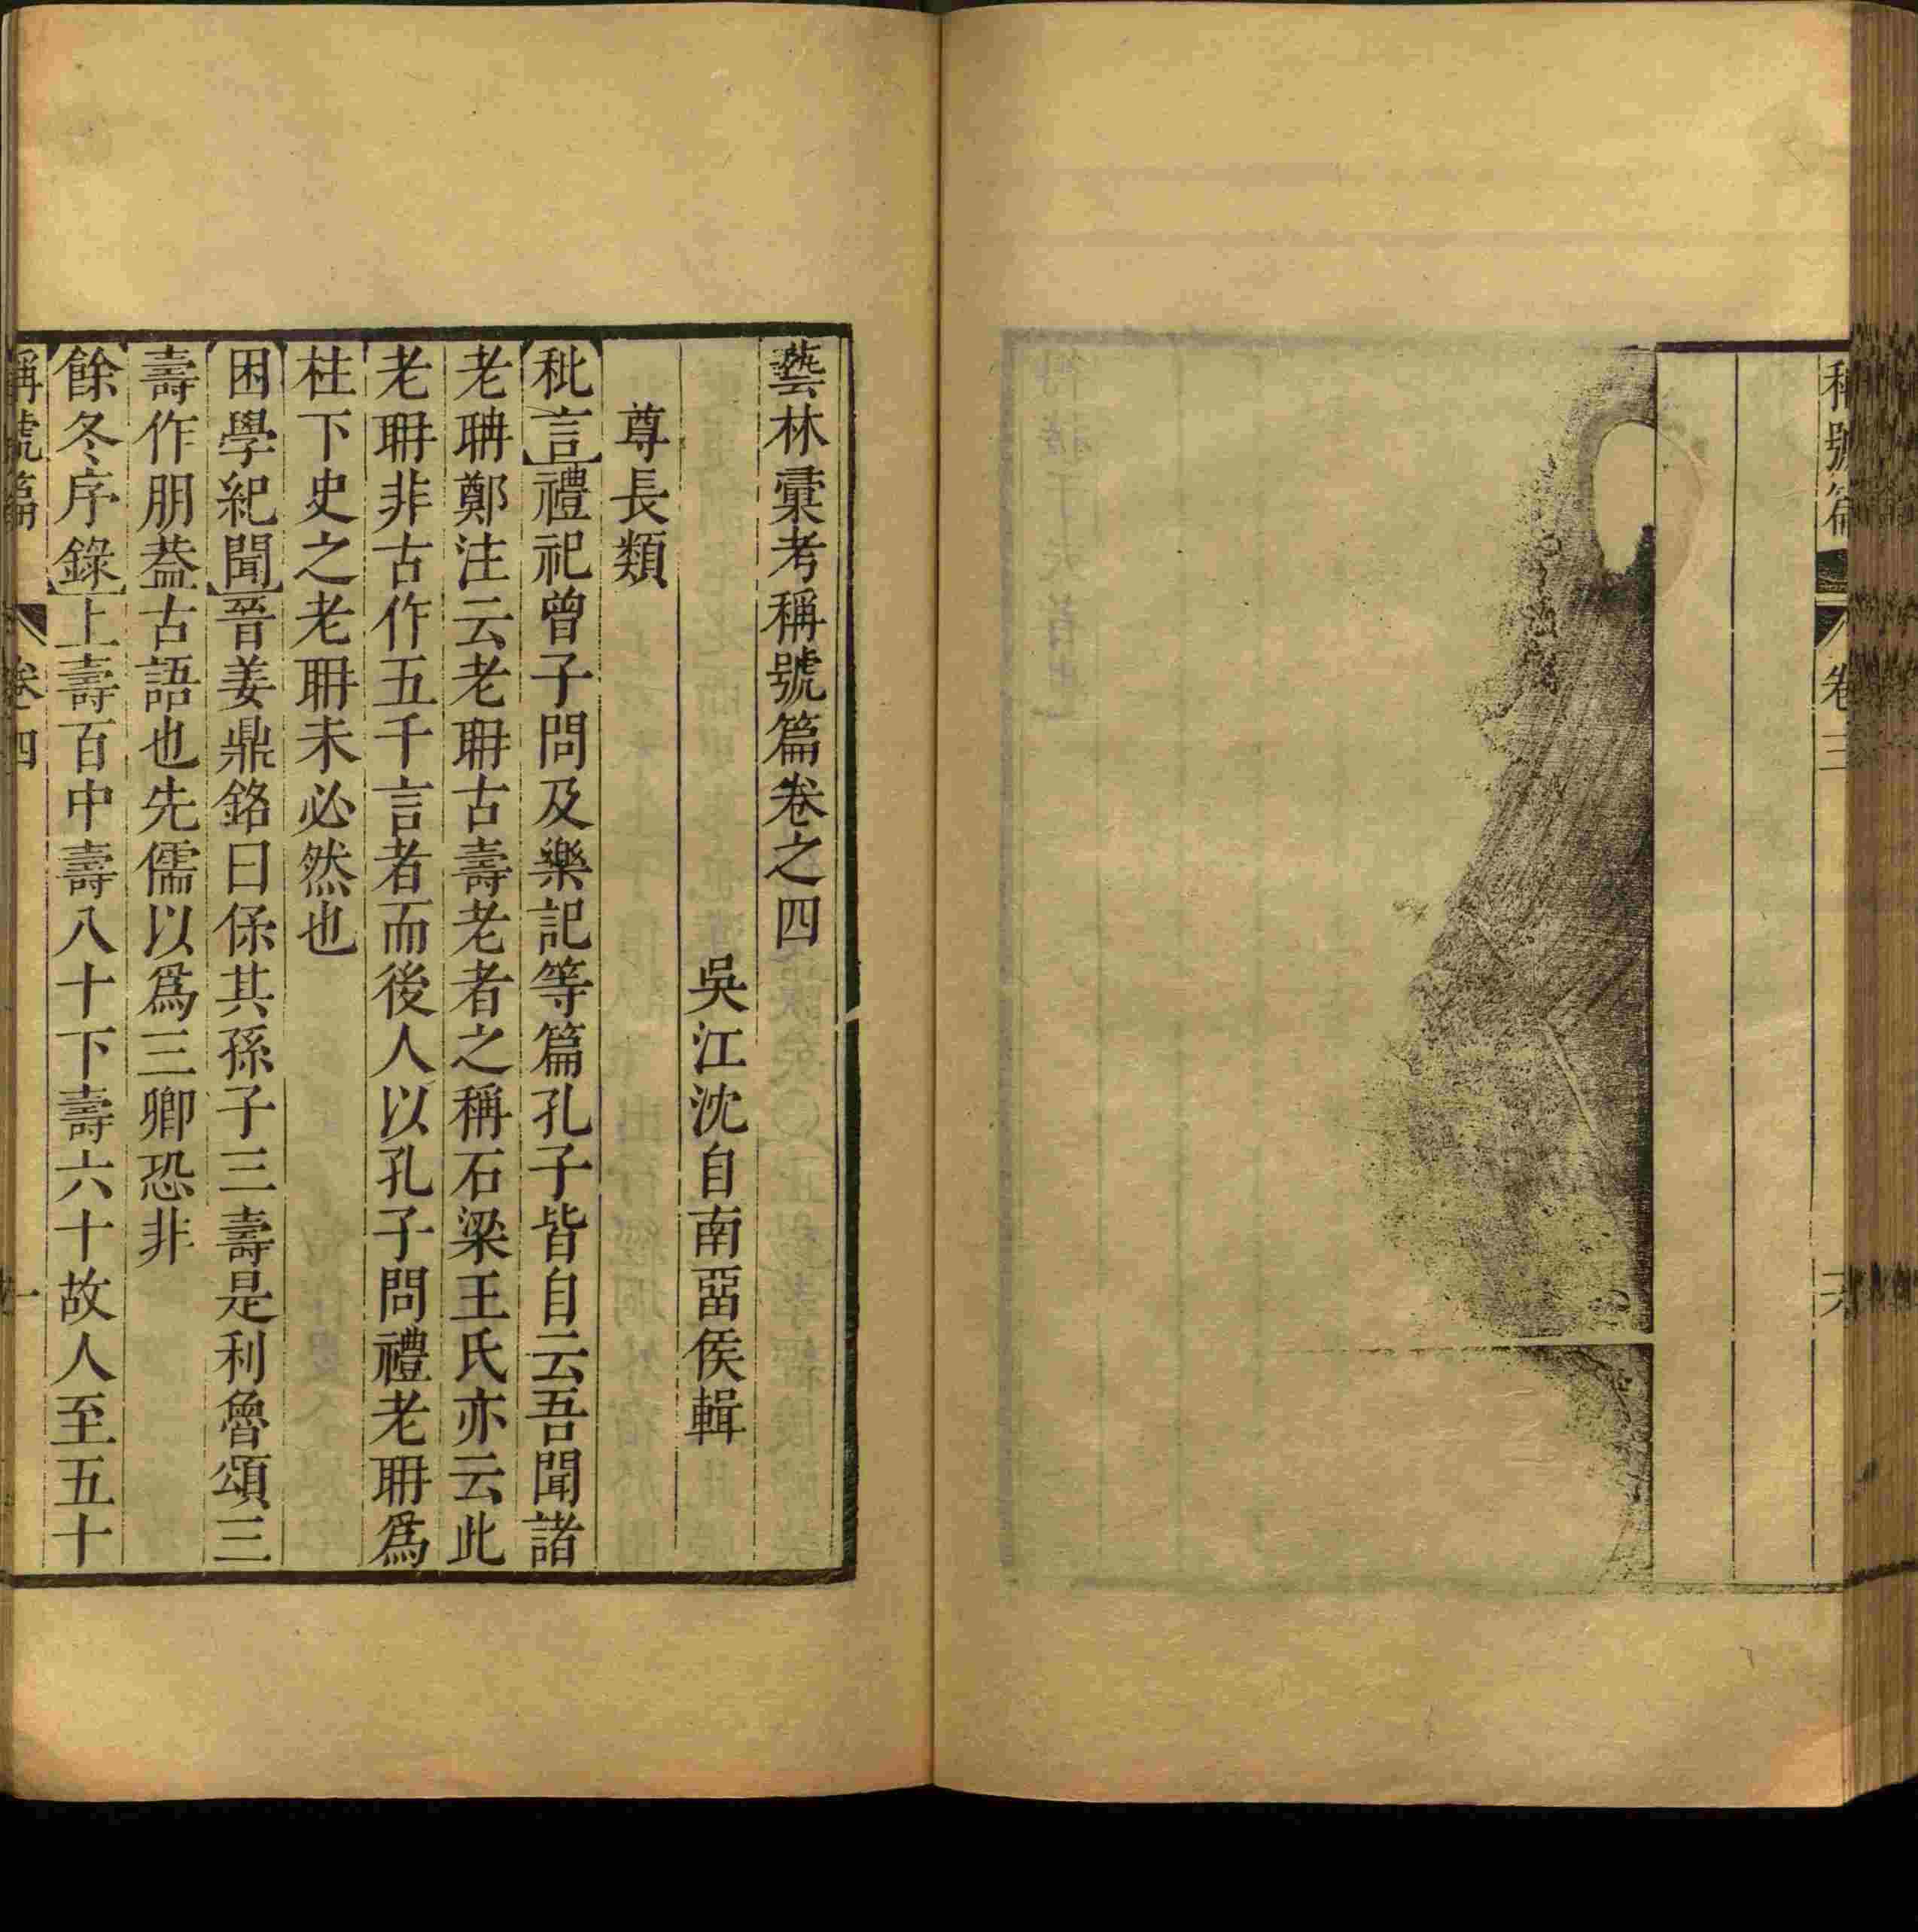 稱號篇
卷三
藝林彙考稱號篇卷之四
吳江沈自南畱侯輯
尊長類
秕言禮祀曾子問及樂記等篇孔子皆自云吾聞諸
老聃鄭注云老聃古壽老者之稱石梁王氏亦云此
老聃非古作五千言者而後人以孔子問禮老聃爲
柱下史之老聃未必然也
困學紀聞晉姜鼎銘曰保其孫子三壽是利魯頌三
壽作朋葢古語也先儒以爲三卿恐非
餘冬序錄上壽百中壽八十下壽六十故人至五十
稱號篇
卷四
一